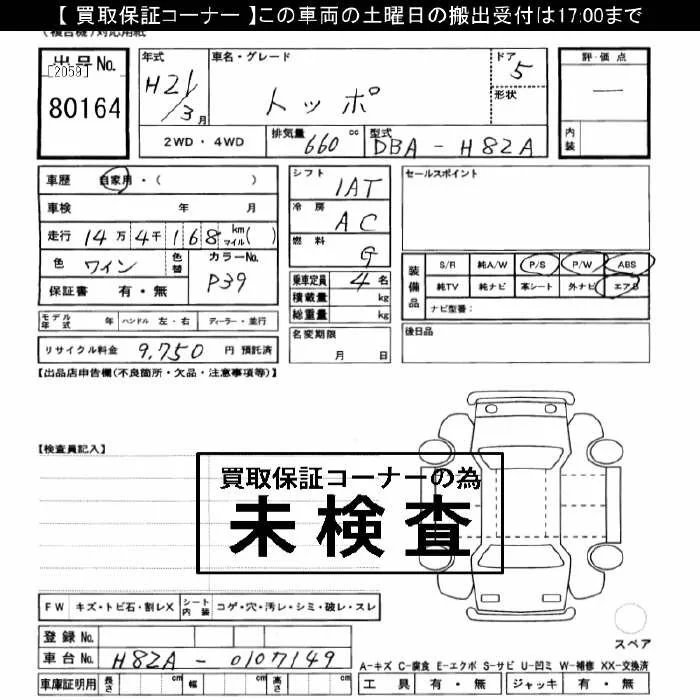 【 買取保証コーナー 】この車両の土曜日の搬出受付は17:00まで
出品No. 年式 車名・グレード ドア 評・価・点
[2059]
80164 H21/3月 トッポ 5 形状 —
2WD・4WD 排気量 660 cc 型式 DBA-H82A 内装
車歴 自家用・( ) シフト 1AT セールスポイント
車検 年 月 冷房 AC
走行 14万4千168 km マイル( ) 燃料 G
色 ワイン 色替 カラーNo. P39 装備品 S/R 純A/W P/S P/W ABS
保証書 有・無 乗車定員 4名 純TV 純ナビ 革シート 外ナビ エアB
積載量 kg ナビ型番:
モデル年式 年 ハンドル 左・右 ディーラー・並行 総重量 kg
リサイクル料金 9,750 円 預託済 名変期限 月 日 後日品
【出品店申告欄(不良箇所・欠品・注意事項等)】
【検査員記入】
買取保証コーナーの為
未検査
FW キズ・トビ石・割レX シート内装 コゲ・穴・汚レ・シミ・破レ・スレ
登録No. スペア
車台No. H82A-0107149
A-キズ C-腐食 E-エクボ S-サビ U-凹ミ W-補修 XX-交換済
車庫証明用 長さ cm 幅 cm 高さ cm 工具 有・無 ジャッキ 有・無